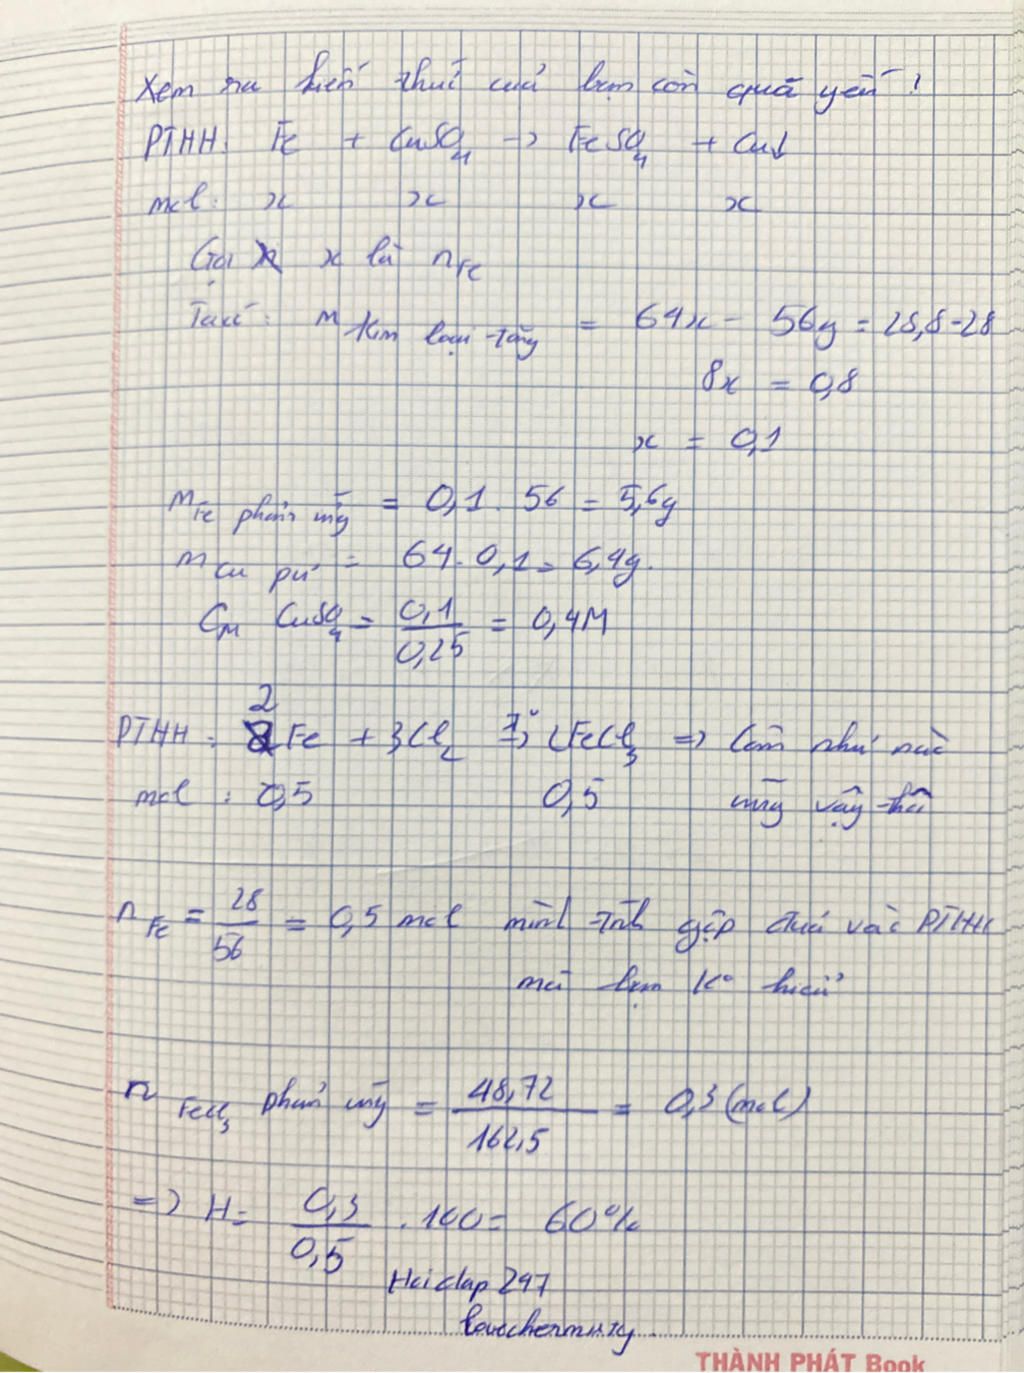 Xem ra kiến thức của bạn còn quá yếu !
PTHH: Fe + CuSO4 -> FeSO4 + Cu↓
mol: x x x x
Gọi x là nFe
Ta có: m kim loại tăng = 64x - 56y = 28,8-28
8x = 0,8
x = 0,1
mFe phản ứng = 0,1 . 56 = 5,6g
mCu pứ = 64. 0,1 = 6,4g.
CM CuSO4 = 0,1/0,25 = 0,4M
PTHH: 2Fe + 3Cl2 t°-> 2FeCl3 => Cân như nào
mol : 0,5 0,5 ứng vậy thôi
nFe = 28/56 = 0,5 mol mình tính gộp đưa vào PTHH
mà bạn k° hiểu
nFeCl3 phản ứng = 48,72/162,5 = 0,3 (mol)
=> H = 0,3/0,5 . 100 = 60%
Haiclap247